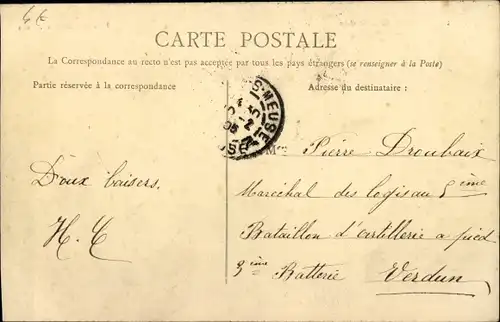 4€
CARTE POSTALE
La Correspondance au recto n'est pas acceptée par tous les pays étrangers (se renseigner à la Poste)
Partie réservée à la correspondance
Adresse du destinataire :
S-MEUSE
5-2
05
Doux baisers.
H. C
M Pierre Droubaix
Maréchal des logis au 5ème
Bataillon d'artillerie a pied
3ème Batterie Verdun